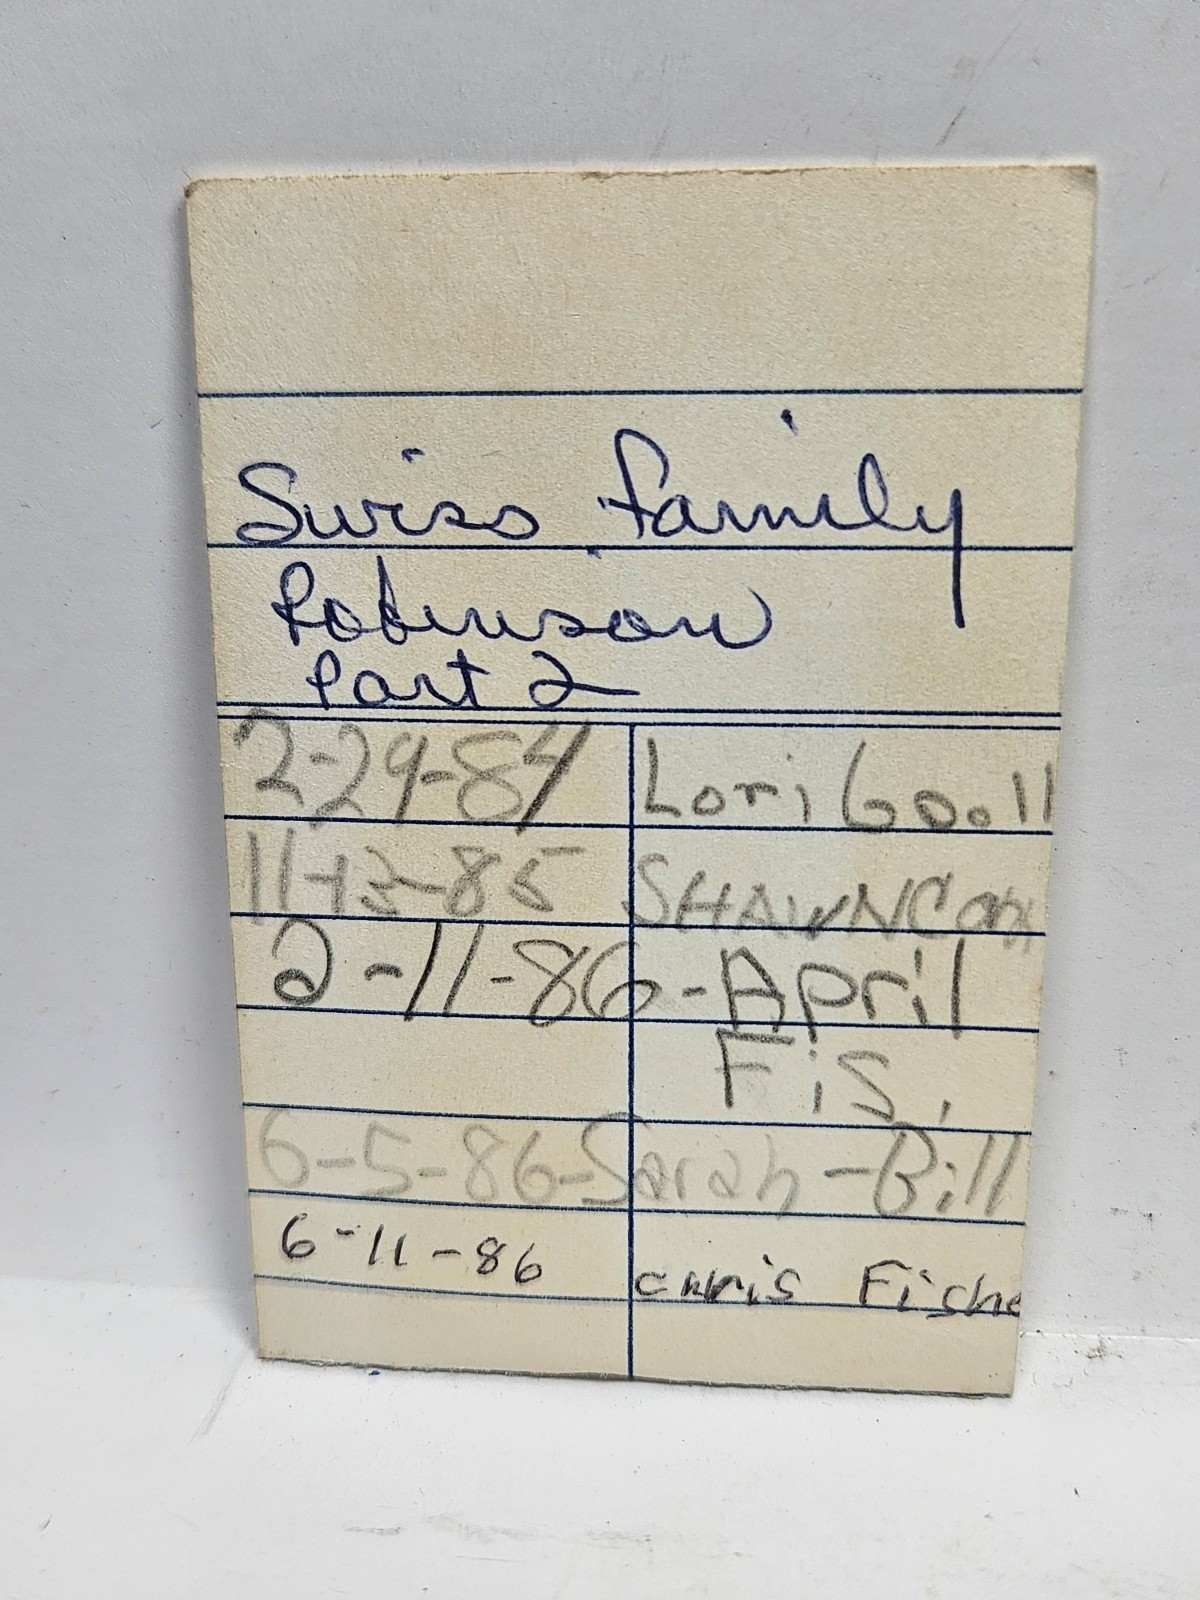 Swiss Family
Robinson
Part 2
2-29-84 Lori Gooll
11-13-85 SHAWN
2-11-86-April
Fis.
6-5-86-Sarah-Bill
6-11-86 chris Fishe